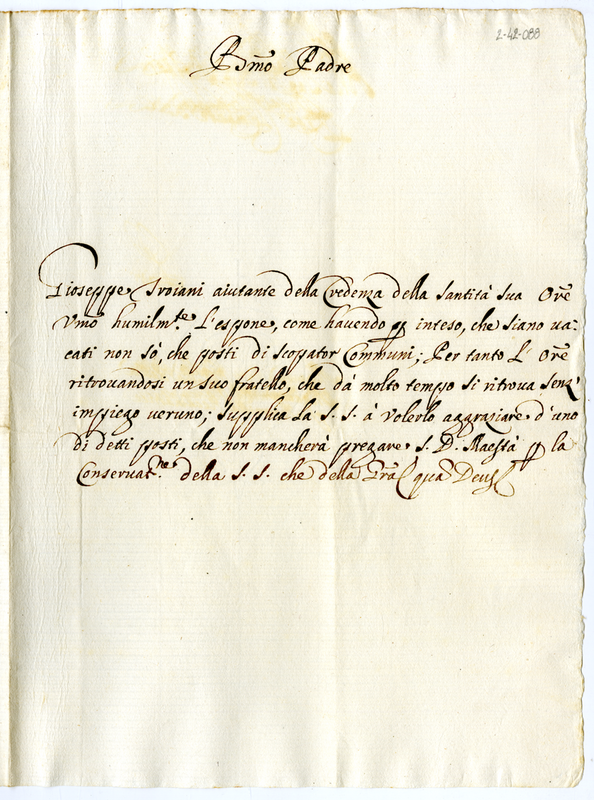 2-42-088
B.mo Padre
Gioseppe Troiani aiutante della Credenza della Santità Sua Ore
Vmo humilm.te L'espone, come havendo p inteso, che siano va:
cati non sò, che posti di scopator Communi; Per tanto L' Ore
ritrovandosi un suo fratello, che dà molto tempo si ritrova senz'
impiego veruno; supplica La S. S. à volerlo aggraziare d'uno
di detti posti, che non mancherà pregare S. D. Maestà p la
Conservat.ne della S. S. che della Gra quà Deus